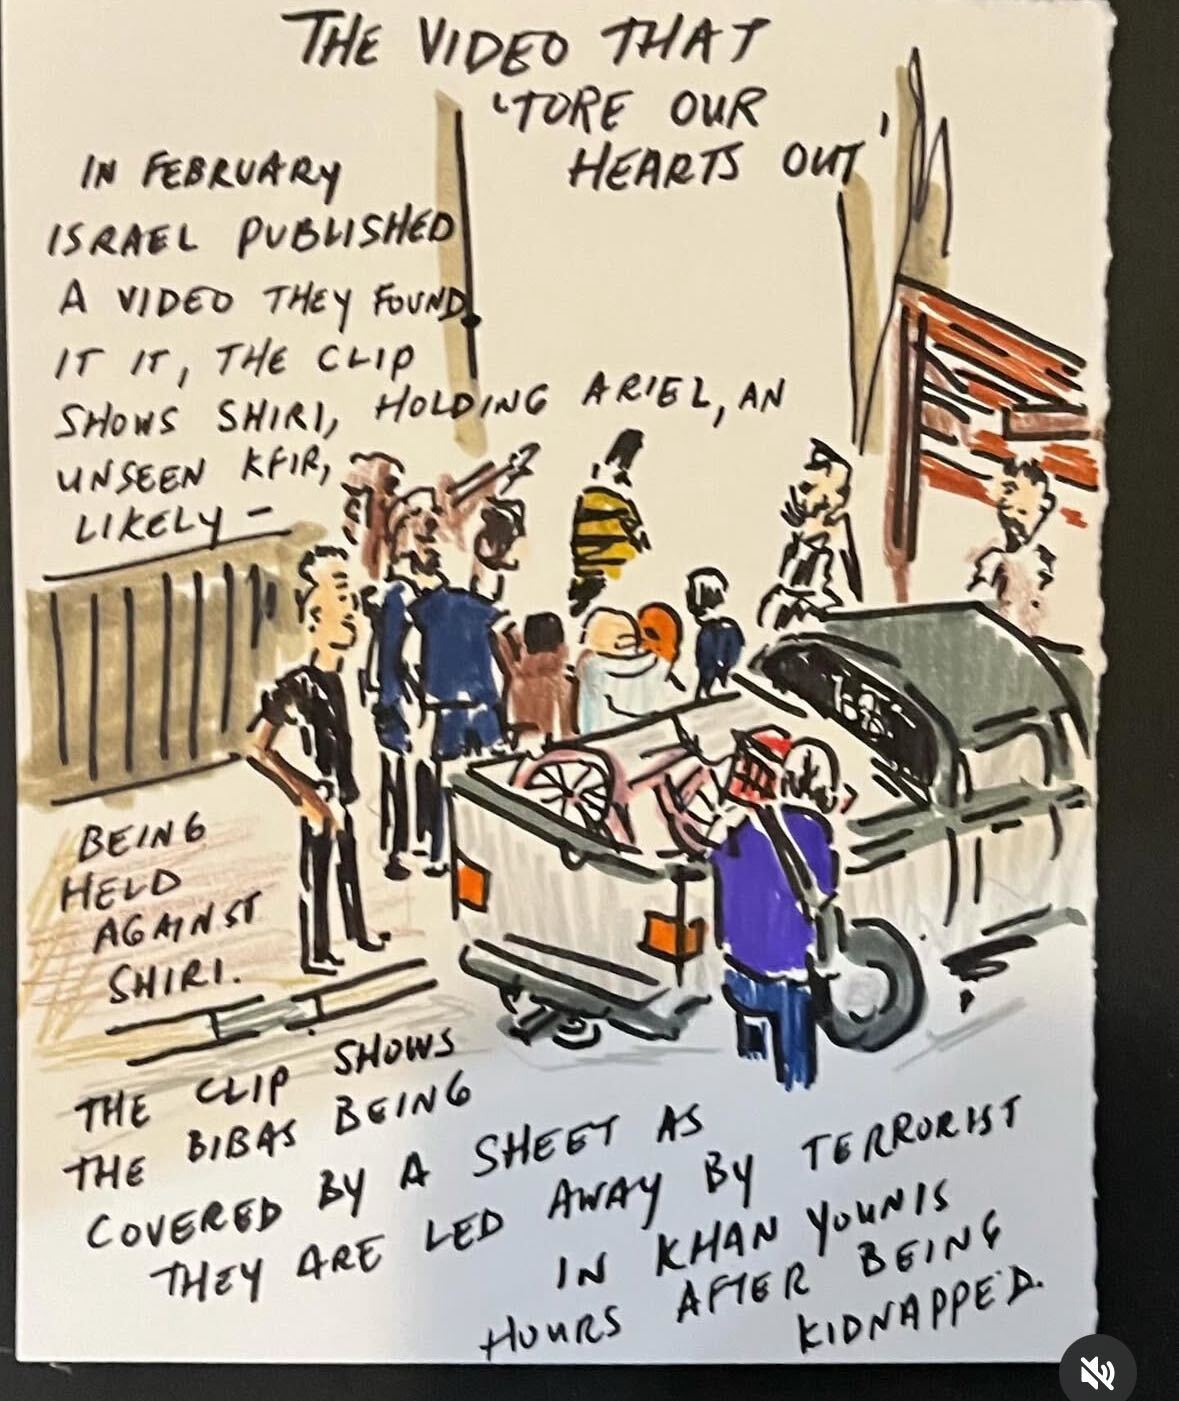 THE VIDEO THAT
'TORE OUR
HEARTS OUT'
IN FEBRUARY
ISRAEL PUBLISHED
A VIDEO THEY FOUND.
IT IT, THE CLIP
SHOWS SHIRI, HOLDING ARIEL, AN
UNSEEN KFIR,
LIKELY -
BEING
HELD
AGAINST
SHIRI.
THE CLIP SHOWS
THE BIBAS BEING
COVERED BY A SHEET AS
THEY ARE LED AWAY BY TERRORIST
IN KHAN YOUNIS
HOURS AFTER BEING
KIDNAPPED.